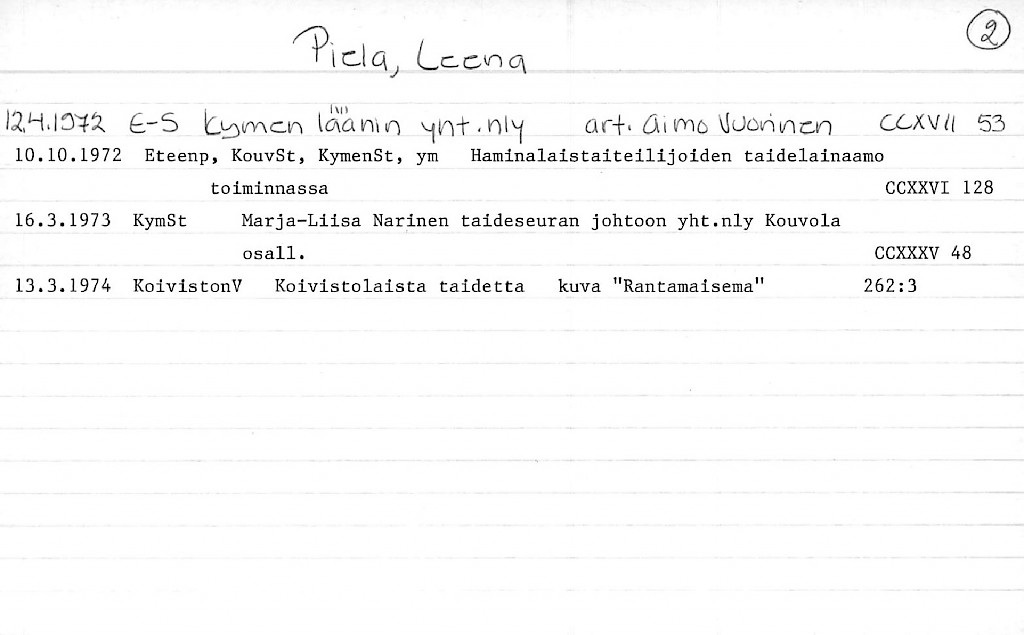 2
Piela, Leena
12.4.1972 E-S Kymen läänin yht.nly art. Aimo Vuorinen CCXVII 53
10.10.1972 Eteenp, KouvSt, KymenSt, ym Haminalaistaiteilijoiden taidelainaamo
toiminnassa CCXXVI 128
16.3.1973 KymSt Marja-Liisa Narinen taideseuran johtoon yht.nly Kouvola
osall. CCXXXV 48
13.3.1974 KoivistonV Koivistolaista taidetta kuva "Rantamaisema" 262:3